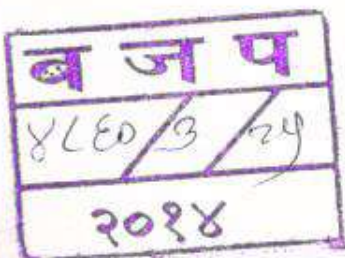 ब ज प
४८६०/३/२५
२०१४